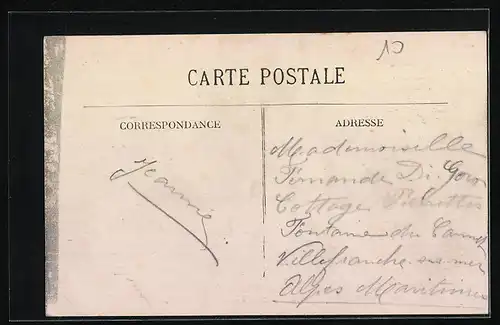 10
CARTE POSTALE
CORRESPONDANCE
ADRESSE
Jeannie
Mademoiselle
Fernande Di.
Cottage
Fontaine du
Villefranche-sur-mer
Alpes Maritimes